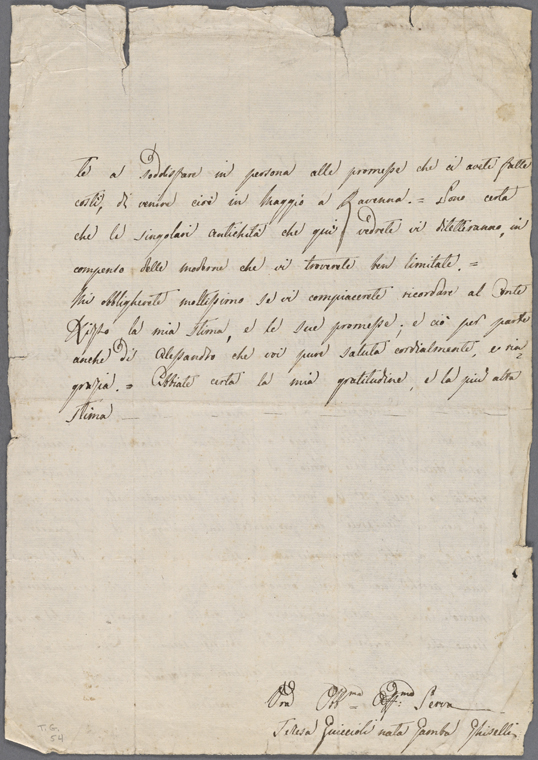 te a soddisfare in persona alle promesse che ci avete fatte
costì, di venire cioè in Maggio a Ravenna. = Sono certa
che le singolari antichità che quì vedrete vi diletteranno, in
compenso delle moderne che vi troverete ben limitate. =
Mi obbligherete moltissimo se vi compiacerete ricordare al Conte
la mia stima, e le sue promesse; e ciò per parte
anche di Alessandro che voi pure saluta cordialmente, e rin=
grazia. = Abbiate certa la mia gratitudine, e la più alta
stima
Obb.ma Aff: ma Serva
Teresa Guiccioli nata Gamba Ghiselli
T.G.
54